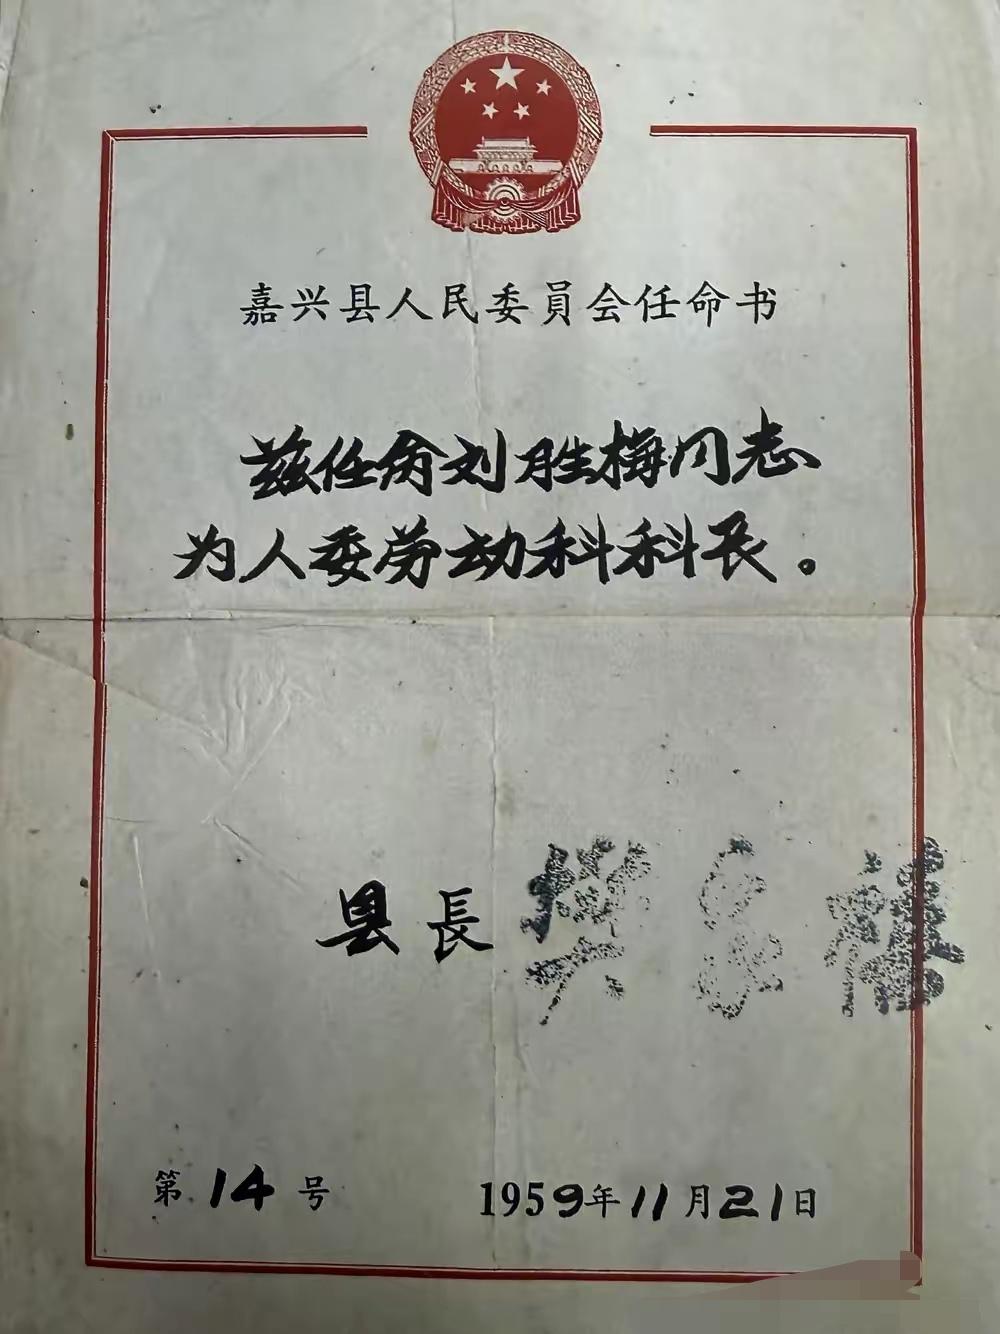 嘉兴县人民委員会任命书
兹任命刘胜梅同志
为人委劳动科科长。
县長
第14号 1959年11月21日